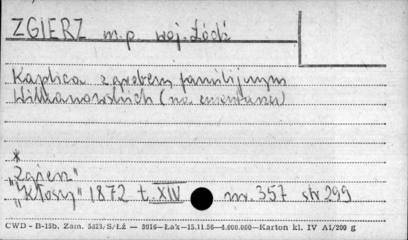 ZGIERZ m.p. woj. Łódź
Kaplica z grobem familijnym
(na cmentarzu)
*
"Zgierz"
"Kłosy" 1872 t. XIV nr. 357 str 299
CWD - B-15b. Zam. 5823/S/Łż — 3016—Łak—15.11.56—4.000.000—Karton kl. IV A1/200 g